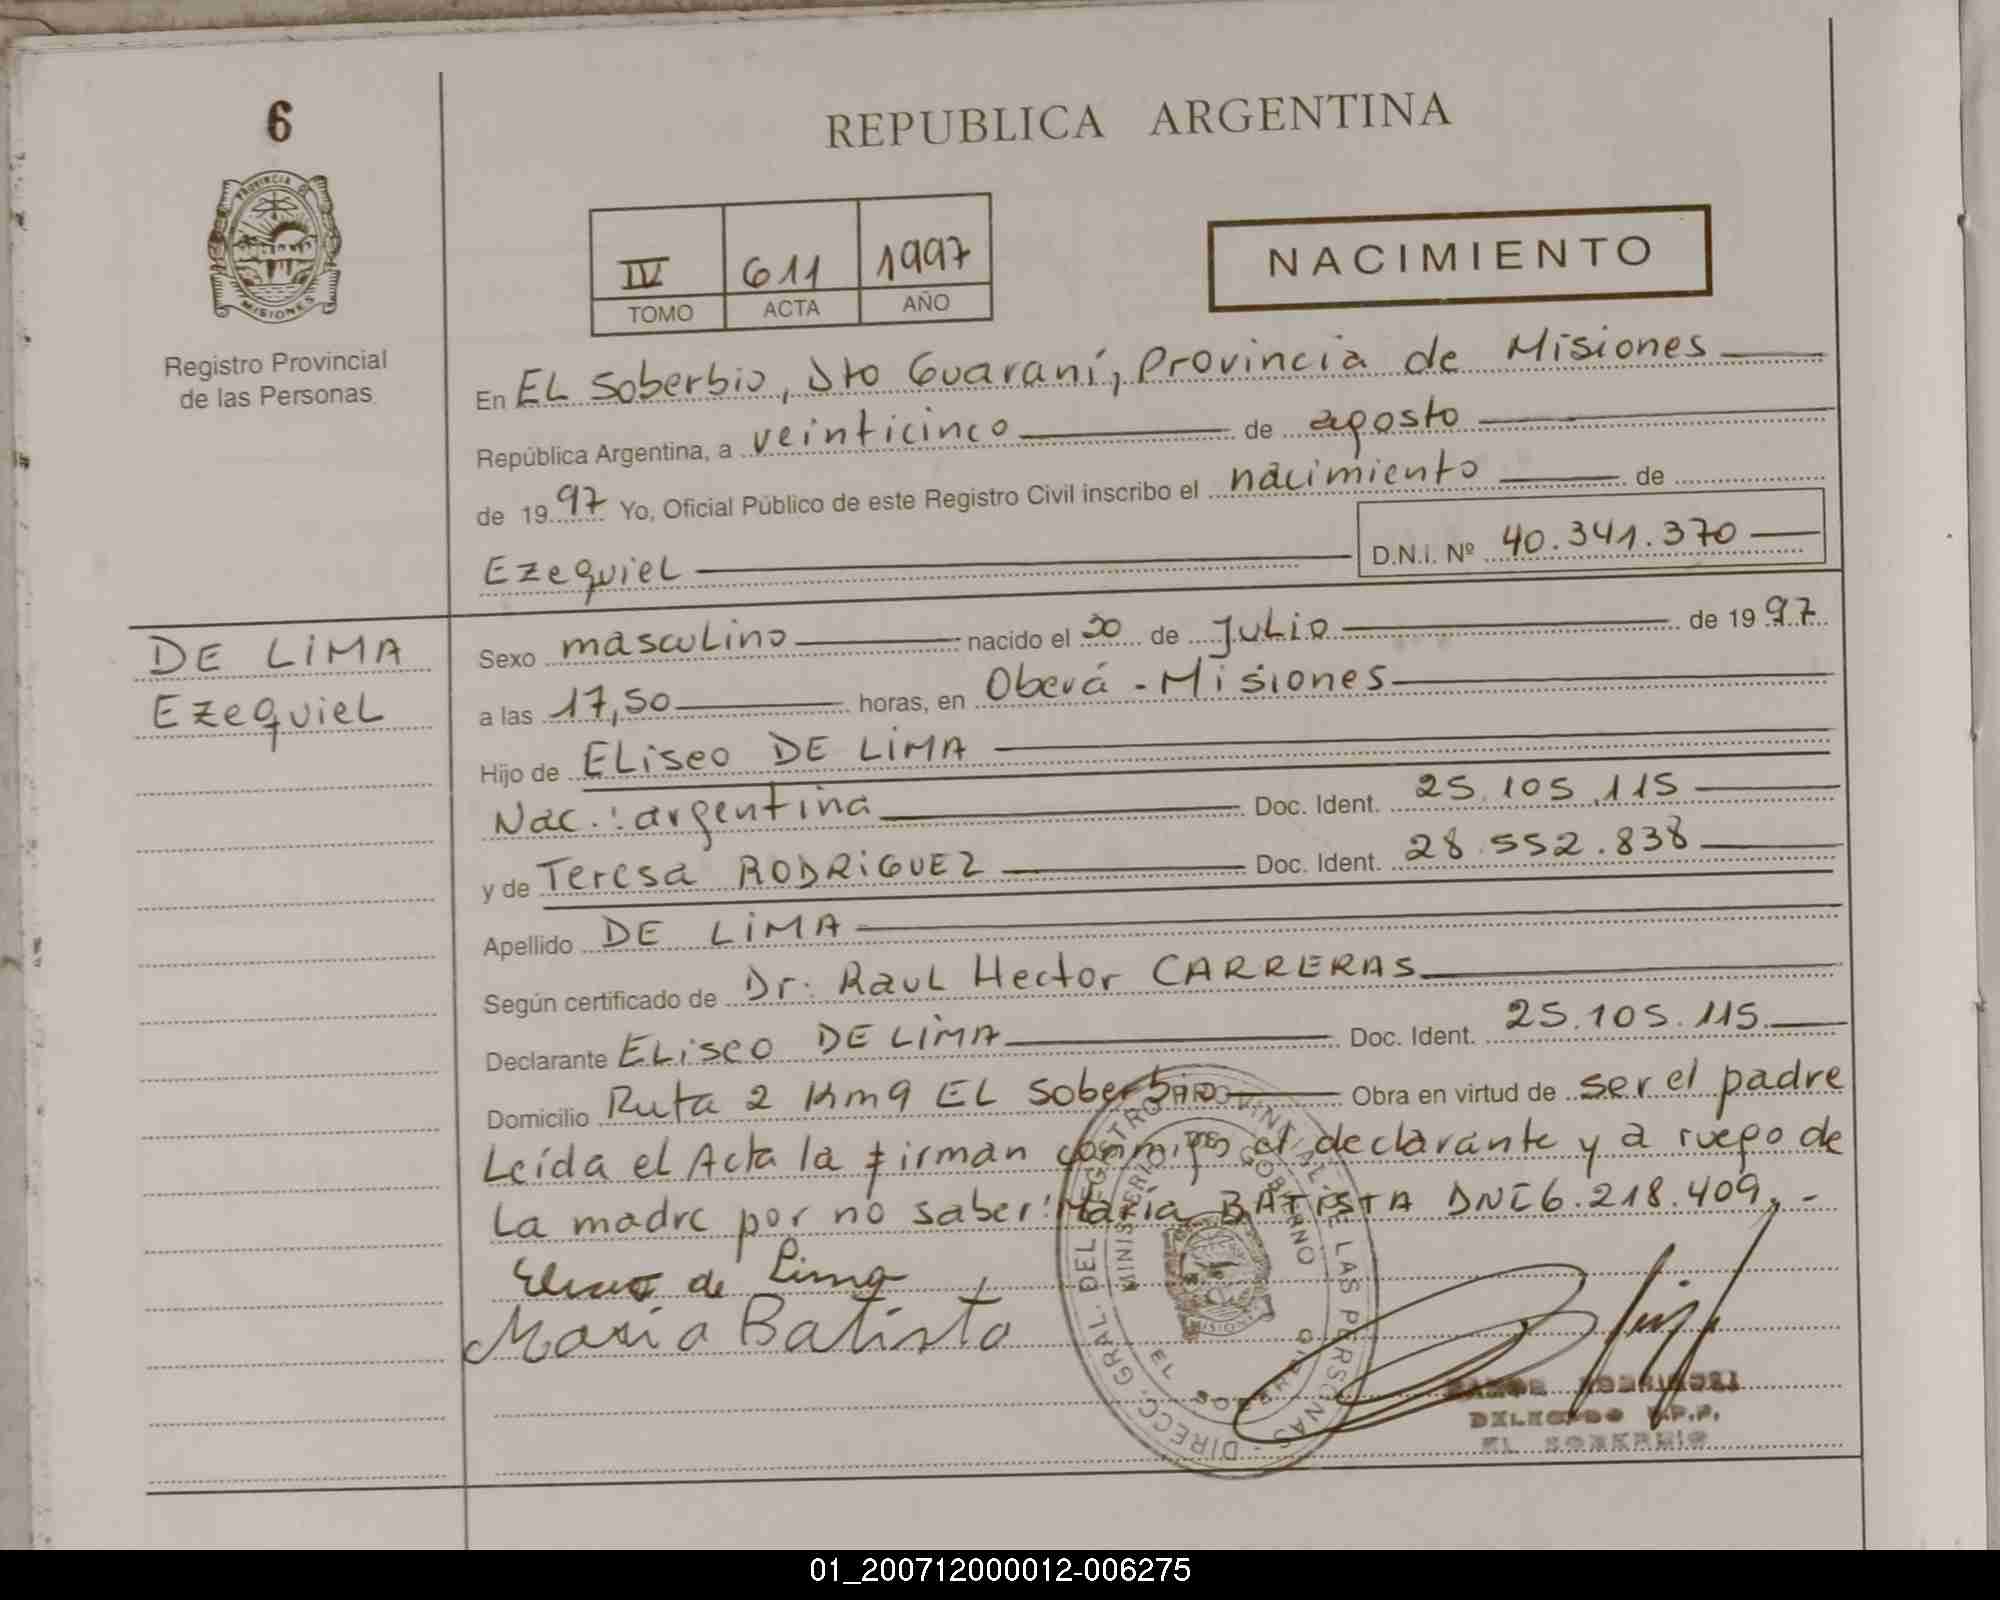 6
REPUBLICA ARGENTINA
PROVINCIA DE
MISIONES
Registro Provincial
de las Personas
IV 611 1997
TOMO ACTA AÑO
NACIMIENTO
En EL Soberbio, Dto Guaraní, Provincia de Misiones
República Argentina, a veinticinco de agosto
de 1997 Yo, Oficial Público de este Registro Civil inscribo el nacimiento de
Ezequiel D.N.I. Nº 40.341.370
DE LIMA
Ezequiel
Sexo masculino nacido el de Julio de 1997
a las 17,50 horas, en Oberá - Misiones
Hijo de Eliseo DE LIMA
Nac.: argentina Doc. Ident. 25.105.115
y de Teresa RODRIGUEZ Doc. Ident. 28.552.838
Apellido DE LIMA
Según certificado de Dr. Raul Hector CARRERAS
Declarante Eliseo DE LIMA Doc. Ident. 25.105.115
Domicilio Ruta 2 Km 9 EL Soberbio Obra en virtud de ser el padre
Leída el Acta la firman conmigo el declarante y a ruego de
La madre por no saber: María BATISTA DNI 6.218.409.-
de Lima
Maria Batista
DIRECC. GRAL. DEL REGISTRO PROVINCIAL DE LAS PERSONAS
MINISTERIO DE GOBIERNO
EL SOBERBIO
MISIONES
DELEGADO R.P.P.
EL SOBERBIO
01_200712000012-006275